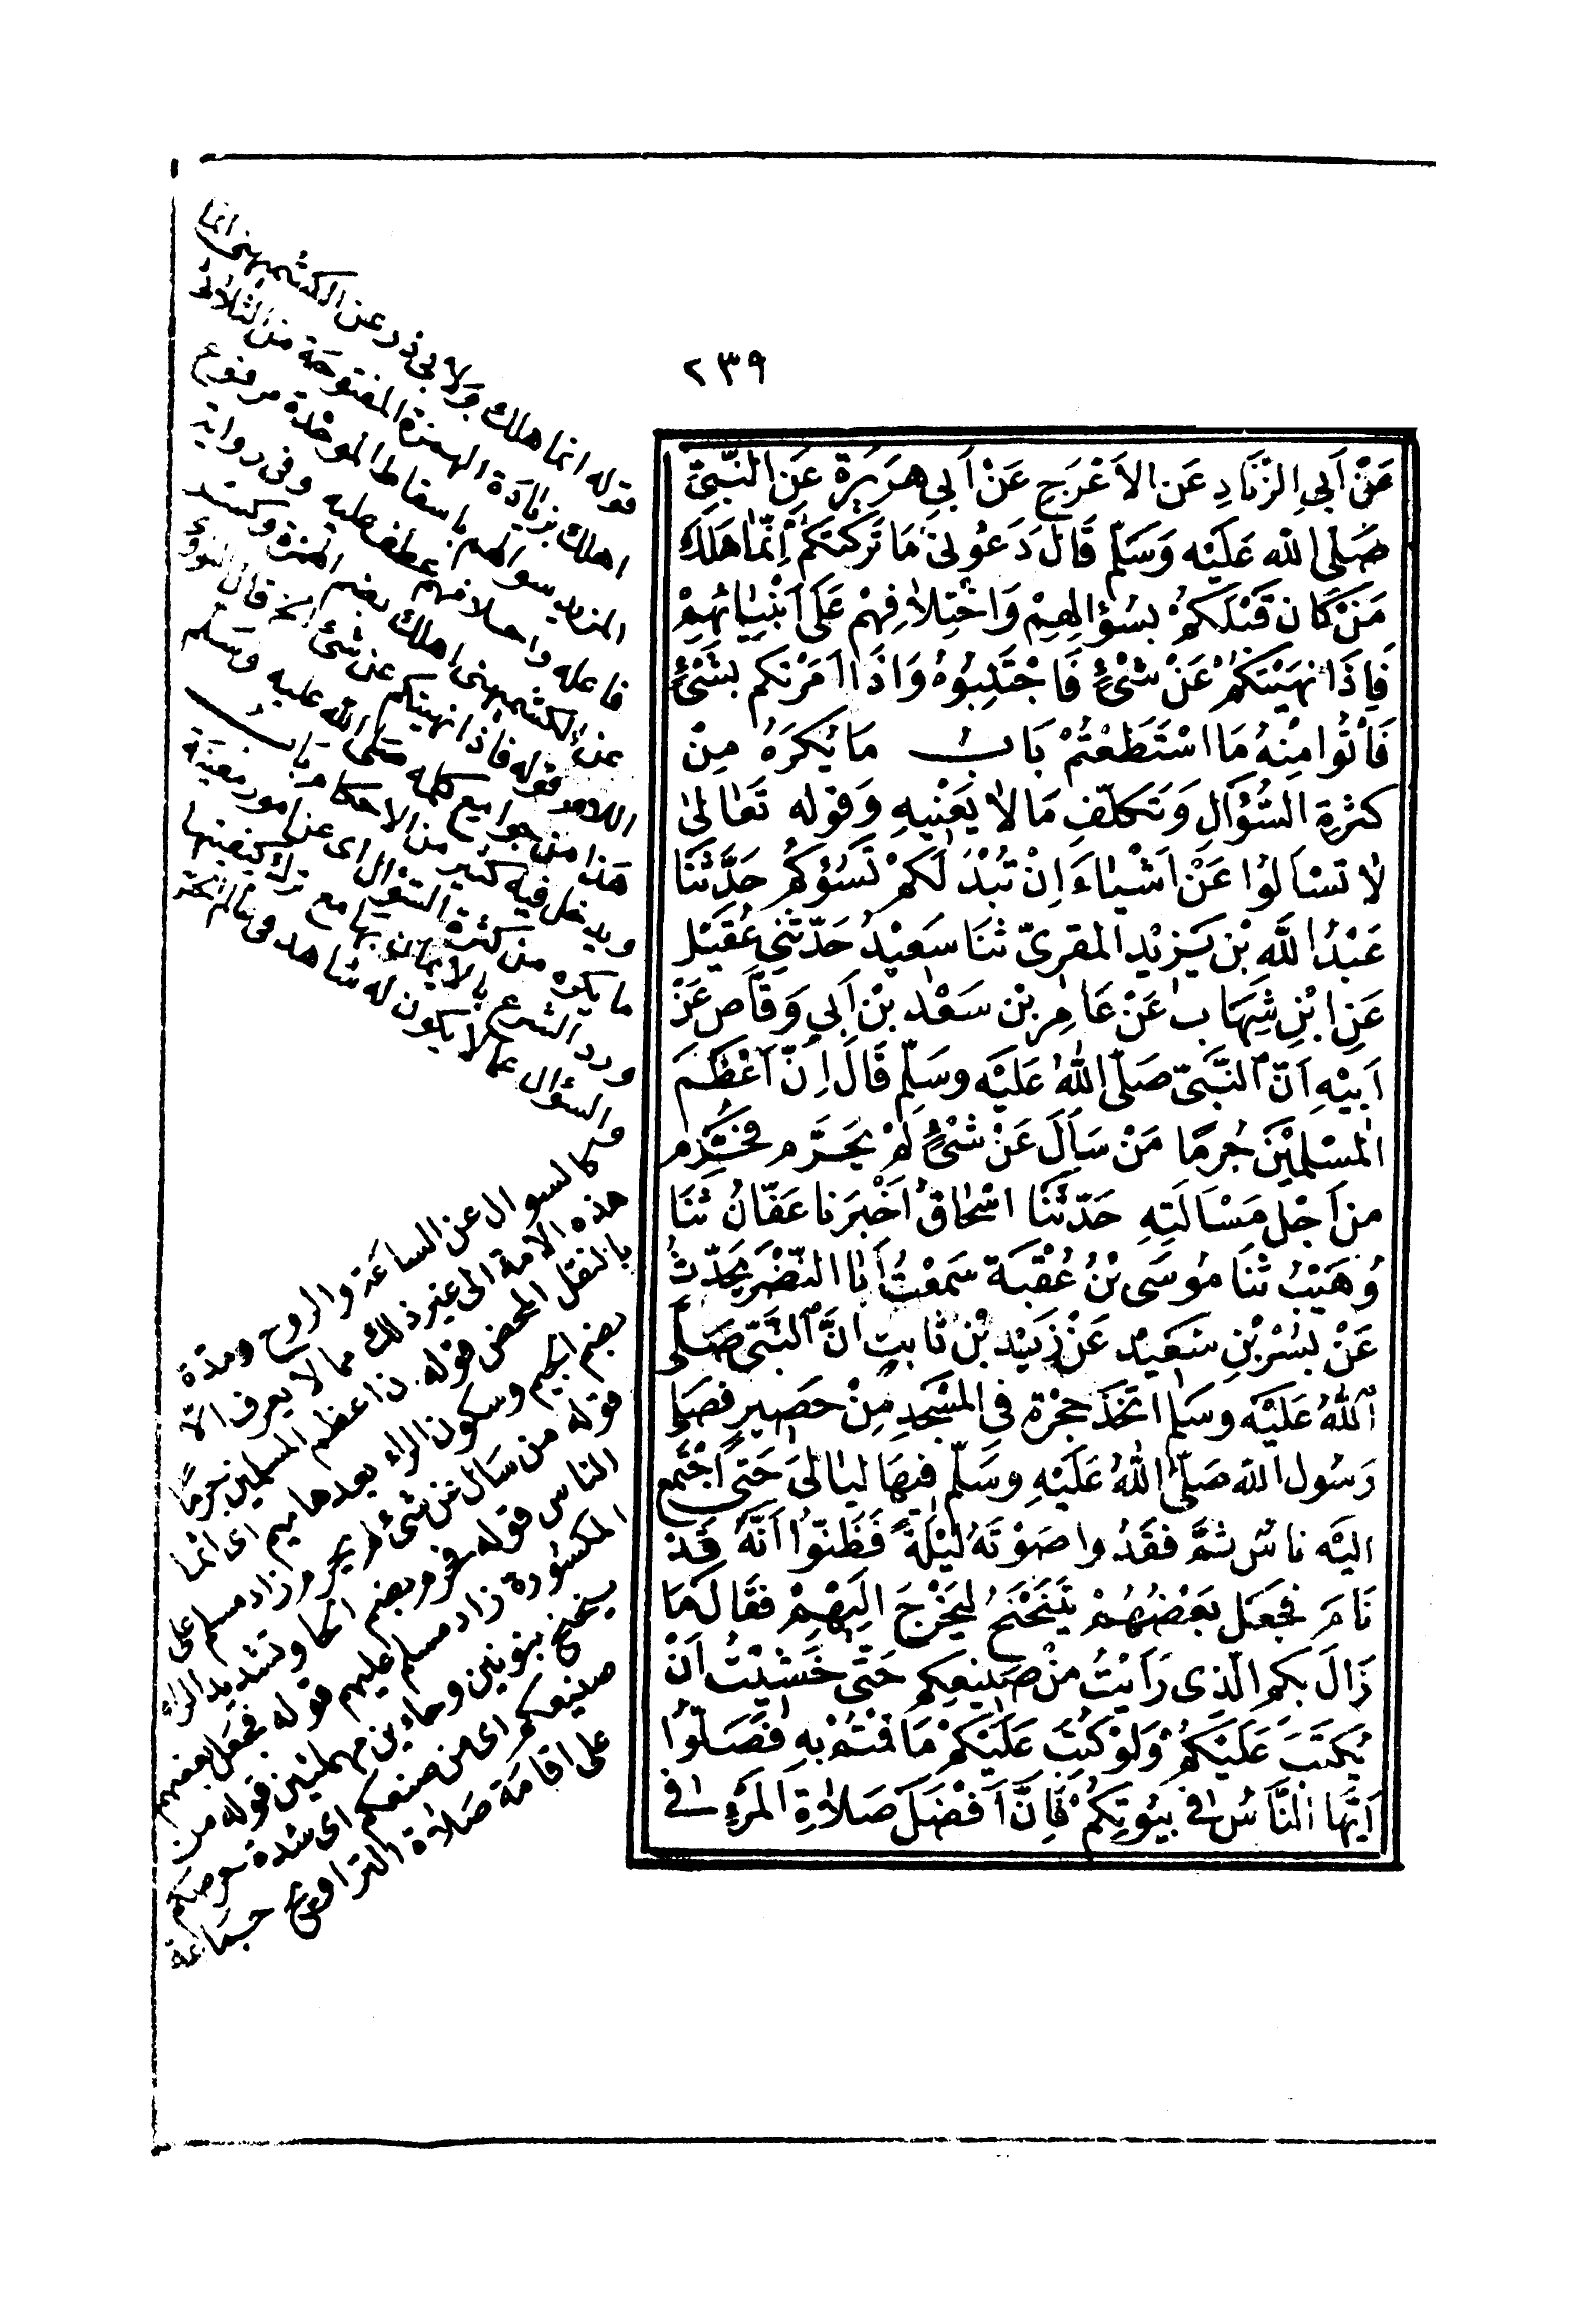 ٢٣٩
عَنْ اَبِي الزِّنَادِ عَنِ الاَعْرَجِ عَنْ اَبِي هُرَيْرَةَ عَنِ النَّبِيِّ
صَلى الله عَلَيْه وَسَلّم قَالَ دَعُونِى مَا تَرَكتكُمْ اِنّمَا هَلَكَ
مَنْ كَانَ قَبْلَكُمْ بسُؤالِهِمْ وَاخْتِلاَفِهِمْ عَلى اَنْبِيَائِهِمْ
فَاِذَا نَهَيْتكُمْ عَنْ شَئٍ فَاجْتَنِبُوهُ وَاذَا اَمَرْتكم بشَئٍ
فَأتُوا مِنْهُ مَا اسْتَطَعْتُمْ بَابُ مَا يُكرَهُ مِنْ
كثرةِ السُّؤَالِ وَتَكلّفِ مَا لاَ يَعْنِيهِ وَقوله تَعَالىٰ
لاَ تسْالُوا عَنْ اَشْيَاءَ اِنْ تُبْدَ لَكمْ تَسُؤكُمْ حَدَّثَنَا
عَبْدُ اللَّه بْن يَزيْد المقرىّ ثنَا سَعِيْدُ حَدّثنِي عُقَيْل
عَنِ ابْنِ شِهَاب عَنْ عَامِر بْن سَعْد بْن اَبي وَقّاص عَنْ
اَبيْهِ اَنّ النَّبىّ صَلّى اللهُ عَلَيْه وسَلّم قَالَ اِنّ اَعْظَمَ
المسْلِمِيْنَ جُرمًا مَنْ سَاَلَ عَنْ شَئٍ لَمْ يُحَرَّم فحُرِّم
من اَجْل مَسْالَتِهِ حَدّثَنَا اسْحَاقُ اَخْبَرَنا عَفّانُ ثنَا
وُهَيْبُ ثنَا مُوسَى بْنُ عُقْبَة سَمعْتُ اَبَا النّضْر يُحَدّثُ
عَنْ بُسْر بْنِ سَعَيد عَنْ زَيْد بْن ثابِتٍ انَّ النَّبىّ صَلّى
اللهُ عَلَيْه وسَلم اتخَذَ حجْرَة فى المَسْجِدِ مِنْ حَصيرٍ فصَلى
رَسُول الله صَلّى اللهُ عَلَيْهِ وسَلّم فيهَا ليالىَ حَتى اجْتَمع
اليْه ناسٌ ثمَّ فقَدُوا صَوْتَهُ لَيْلَةً فَظَنّوا اَنّهُ قدْ
نَامَ فجَعَل بَعْضُهُمْ يَتَنَحْنَحُ لِيَخْرُجَ الِيْهِمْ فقَال مَا
زَالَ بكم الّذِى رَاَيْتُ منْ صَنيعكم حَتّى خَشيْتُ اَنْ
يُكتَبَ عَلَيْكُمْ وَلَوْ كتِبَ عَلَيْكمْ مَا قمْتُمْ بهِ فصَلّوا
اَيّهَا النَّاسُ فى بيُوتِكُمْ فَاِنَّ اَفْضَلَ صَلاَةِ المَرْءِ فى
قوله انما هلك ولابى ذر عن الكشميهنى انما
اهلك بزيادة الهمزة المفتوحة من الثلاثى
المزيد سوالهم باسقاط الموحدة مرفوع
فاعله واختلافهم عطف عليه وفى رواية
عن الكشميهنى اهلك بضم الهمزة وكسر
اللام قوله فاذا نهيتكم عن شئ الخ قال النووى
هذا من جوامع كلمه صلى الله عليه وسلم
ويدخل فيه كثير من الاحكام باب
ما يكره من كثرة السؤال اى عن امور مغيبة
ورد الشرع بالايمان بها مع ترك كيفيتها
والسؤال عما لا يكون له شاهد فى عالم
كالسوال عن الساعة والروح ومدة
هذه الامة الى غير ذلك مما لا يعرف الا
بالنقل المحض قوله ان اعظم المسلمين جرما
بضم الجيم وسكون الراء بعدها ميم اى اثما
قوله من سال عن شئ لم يحرم زاد مسلم على
الناس قوله فحرم بضم الحا وتشديد الراء
المكسورة زاد مسلم عليهم قوله فجعل بعضهم
يتنحنح بنونين وحاءين مهملتين قوله من
صنيعكم اى من صنعكم اى شدة حرصكم
على اقامة صلاة التراويح جماعة